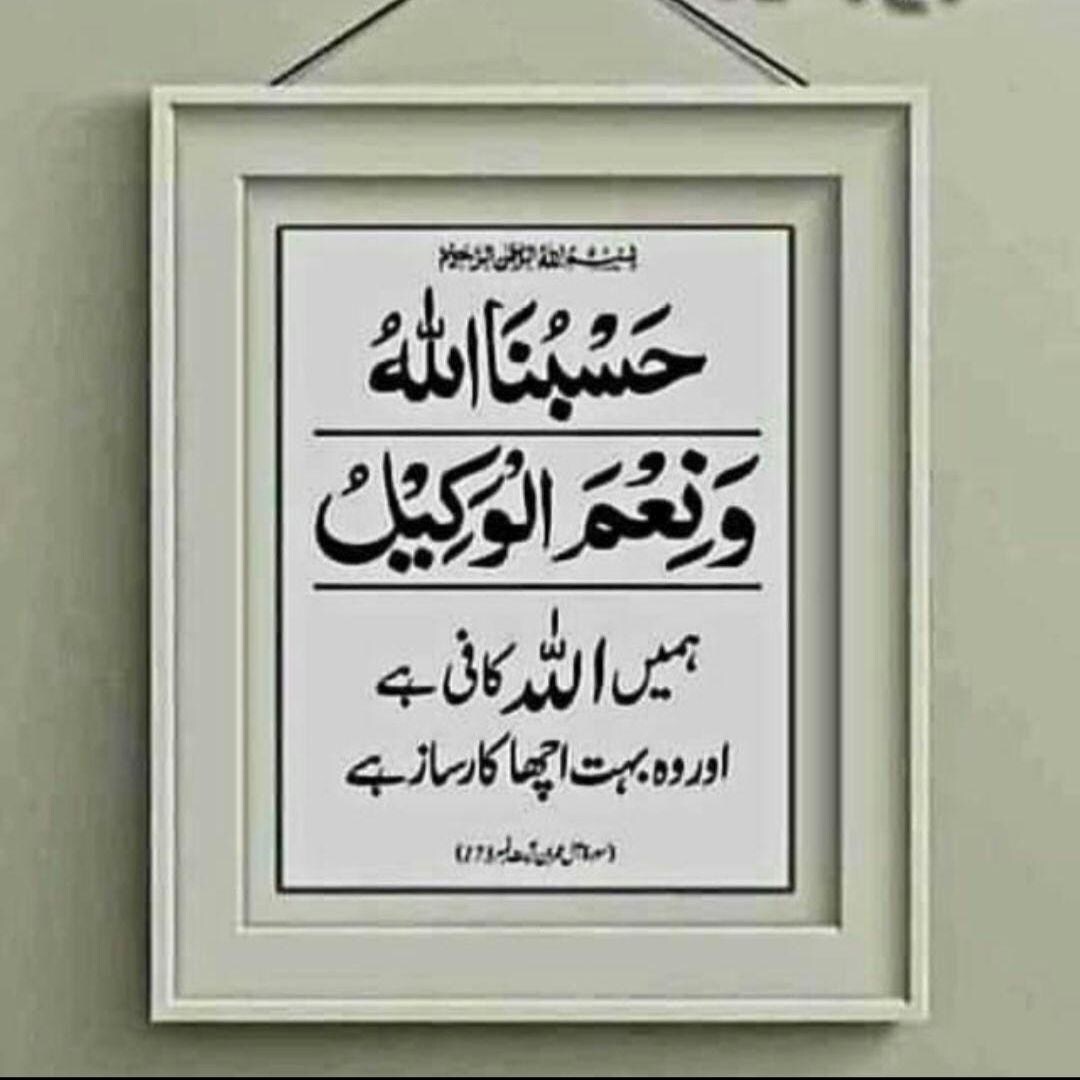 بِسْمِ اللهِ الرَّحْمٰنِ الرَّحِيْمِ
حَسْبُنَا اللهُ
وَنِعْمَ الْوَكِيْلُ
ہمیں اللہ کافی ہے
اور وہ بہت اچھا کارساز ہے
(سورۃ آل عمران آیت نمبر 173)